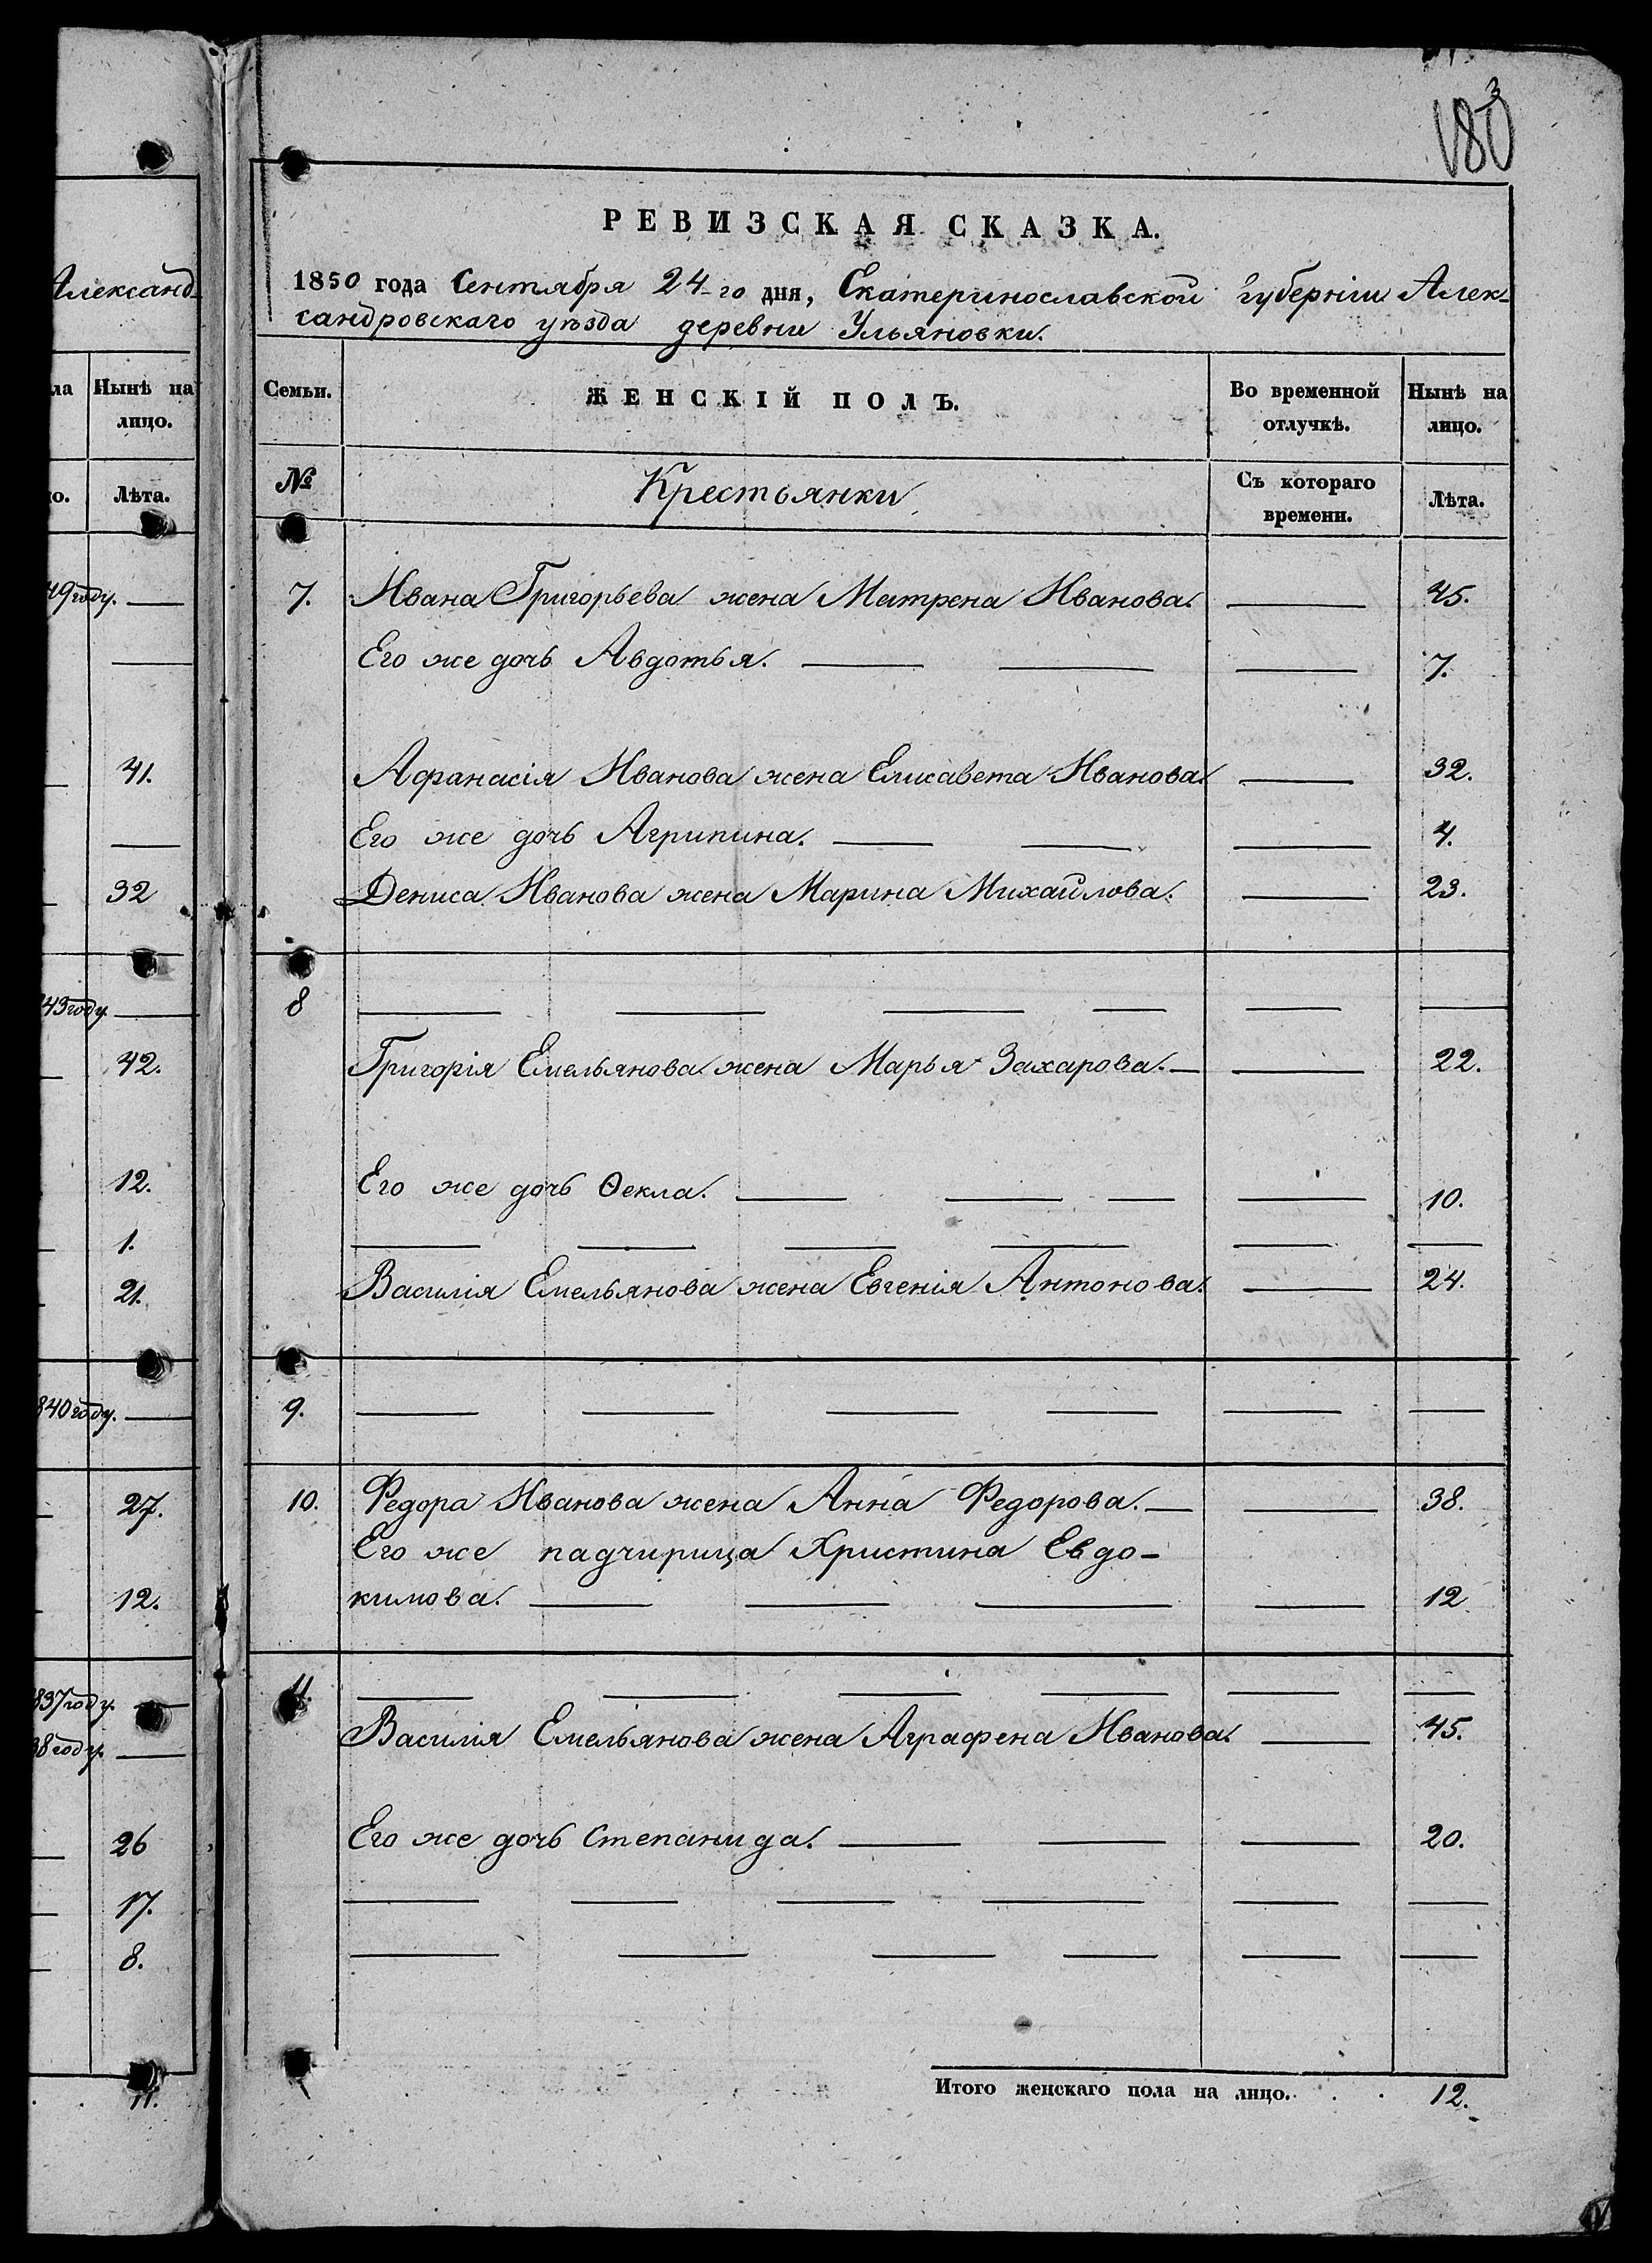 Александ-
Нынѣ на
лицо.
Лѣта.
49 году. —
41.
32
43 году —
42.
12.
1.
21.
840 году. —
27.
12.
837 году. —
38 году. —
26
17.
8.
11.
180
3
РЕВИЗСКАЯ СКАЗКА.
1850 года Сентября 24-го дня, Екатеринославской губерніи Алек-
сандровскаго уѣзда деревни Ульяновки.
Семьи. ЖЕНСКІЙ ПОЛЪ. Во временной отлучкѣ. Нынѣ на лицо.
№ Крестьянки Съ котораго времени. Лѣта.
7. Ивана Григорьева жена Матрена Иванова. — 45.
Его же дочь Авдотья. — — — 7.
Афанасія Иванова жена Елисавета Иванова. — 32.
Его же дочь Агрипина. — — — 4.
Дениса Иванова жена Марина Михайлова. — 23.
8 — — — — — —
Григорія Емельянова жена Марья Захарова. — — 22.
Его же дочь Ѳекла. — — — — 10.
— — — — — —
Василія Емельянова жена Евгенія Антонова. — 24.
9. — — — — — —
10. Федора Иванова жена Анна Федорова. — — 38.
Его же падчирица Христина Евдо-
кимова. — — — — 12
11. — — — — — —
Василія Емельянова жена Аграфена Иванова. — 45.
Его же дочь Степанида. — — — 20.
— — — — — —
— — — — — —
Итого женскаго пола на лицо. . . 12.